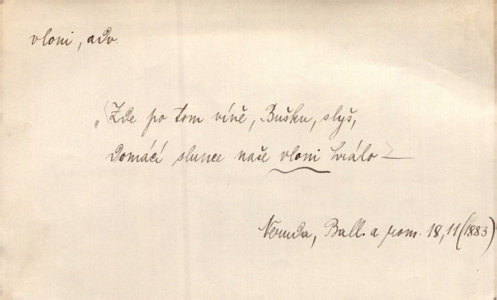 vloni, adv.
„Zde po tom víně, Bušku, slyš,
domácí slunce naše vloni hrálo –
Neruda, Ball. a rom. 18, 11 (1883)